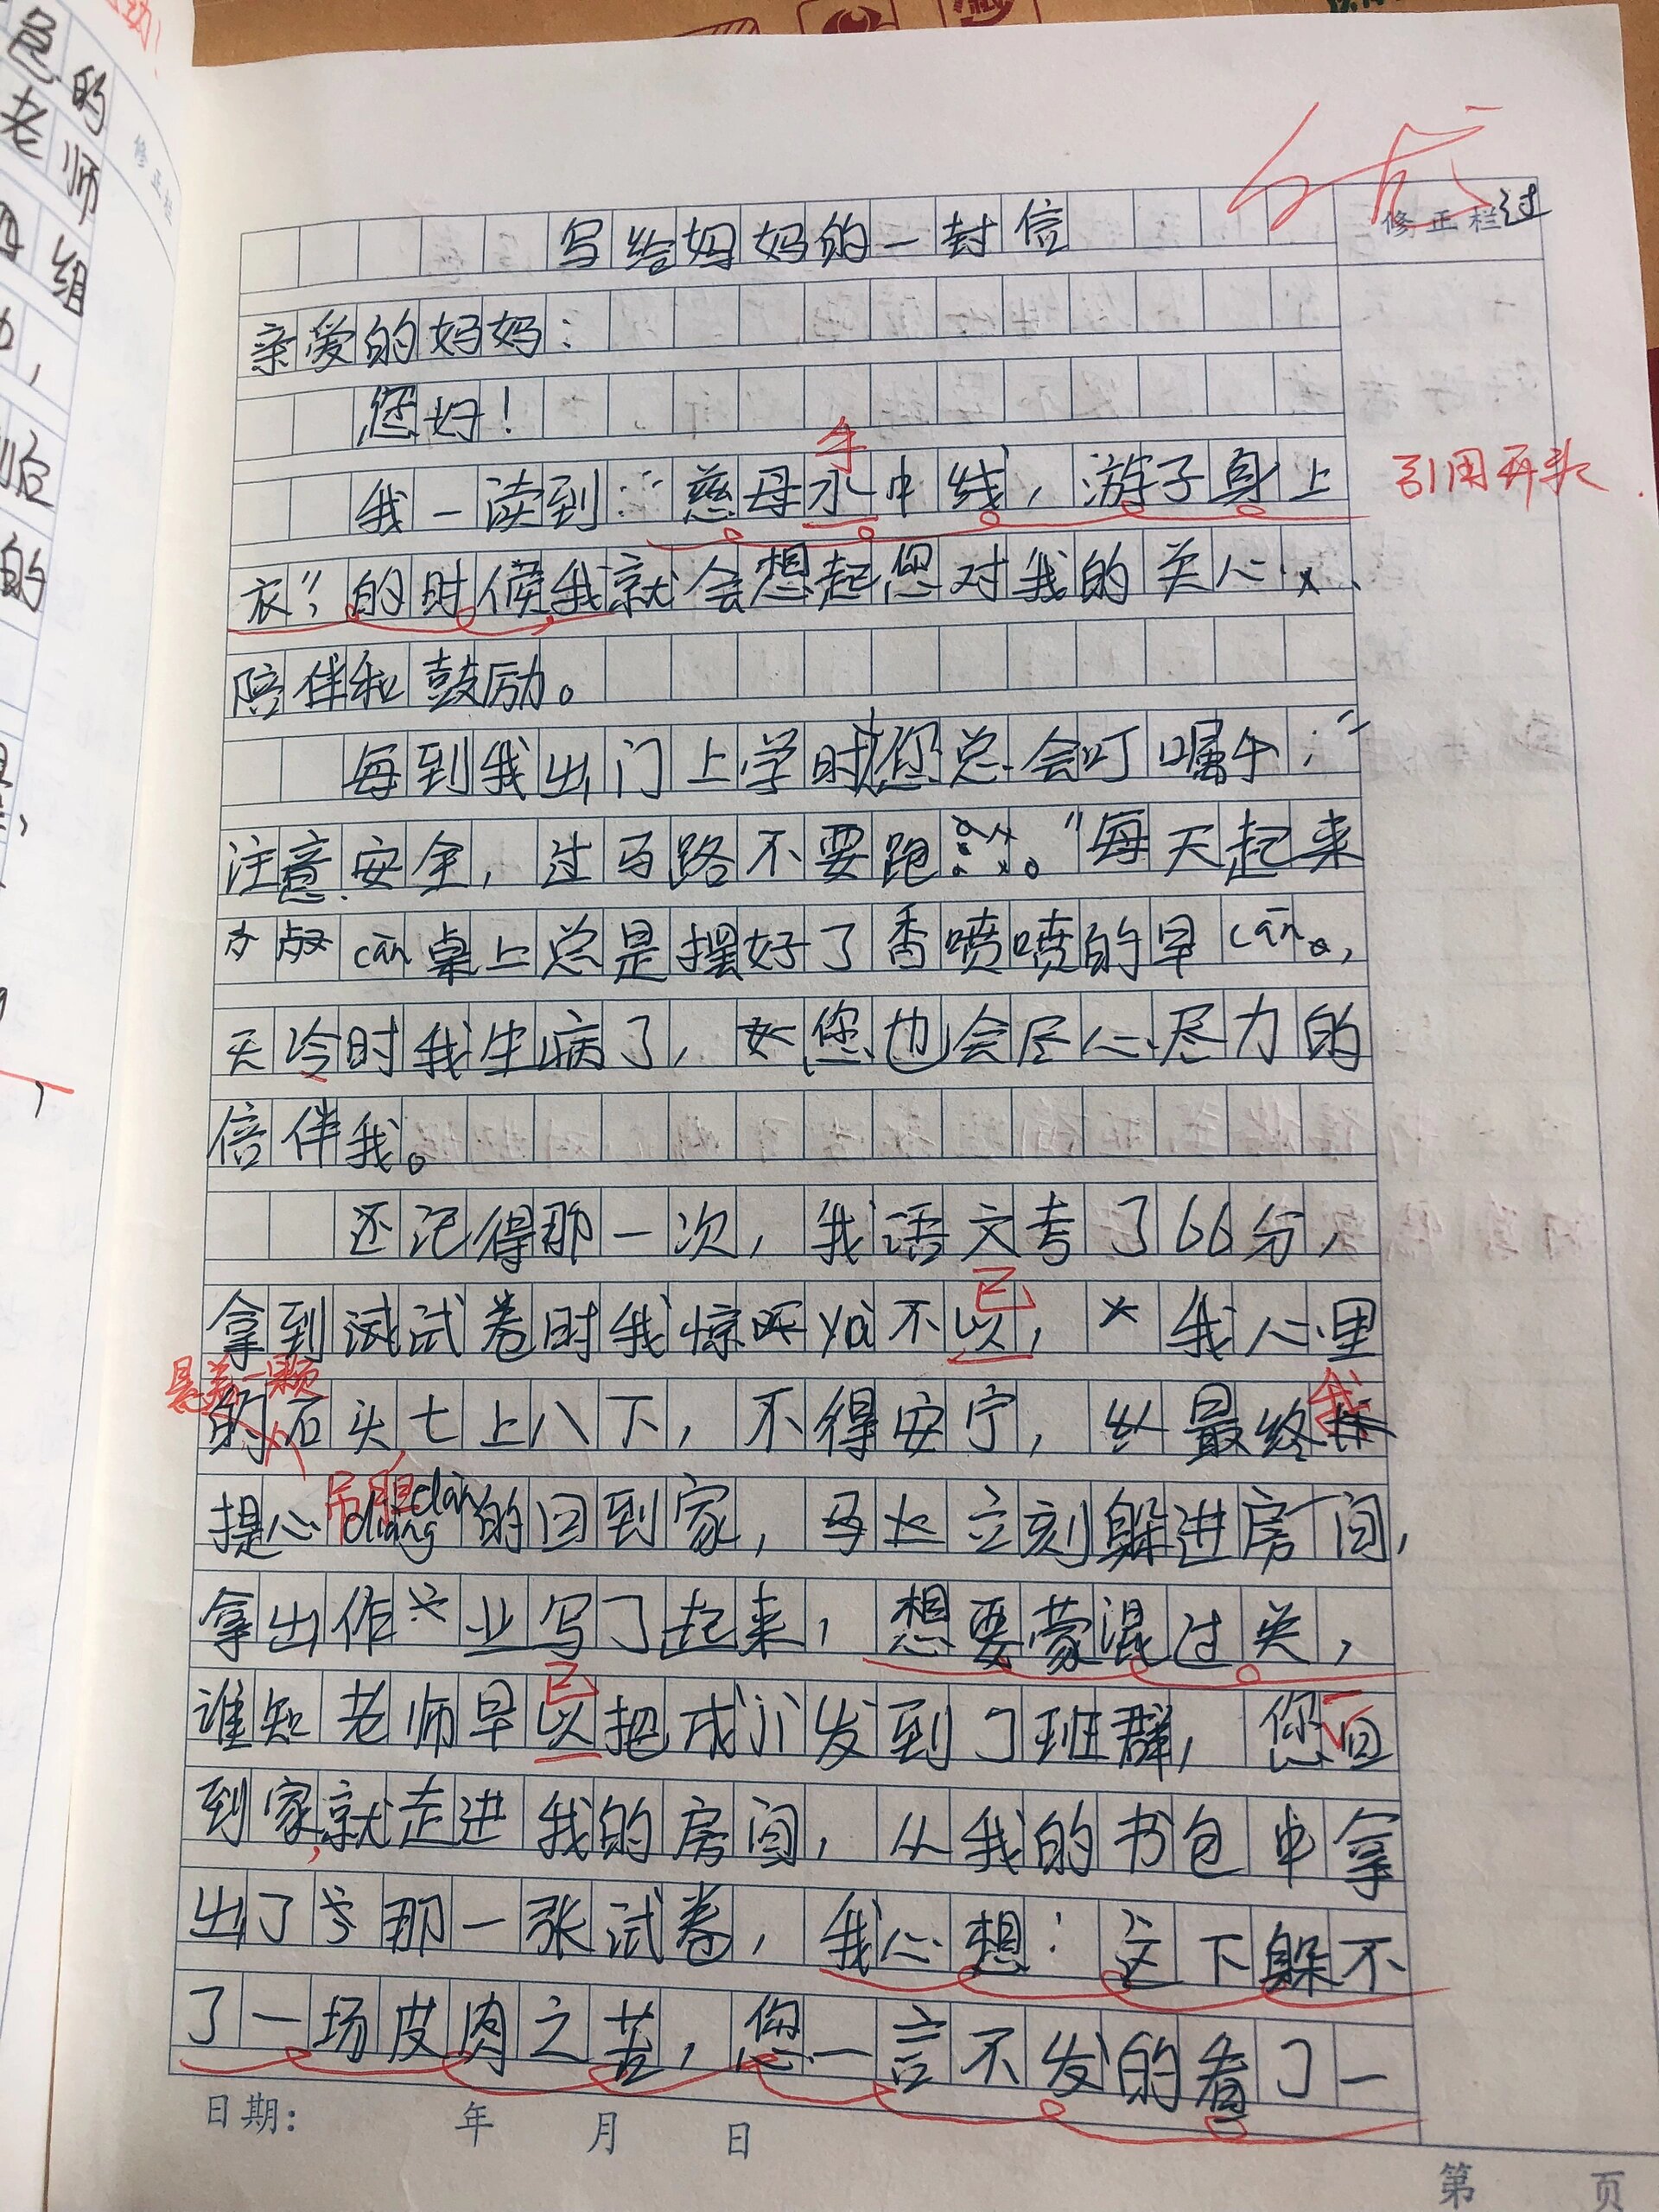 写给妈妈的一封信
修正栏
过
亲爱的妈妈：
您好！
手
我一读到：“慈母水中线，游子身上
引用开头
衣”，的时候我就会想起您对我的关心、
陪伴和鼓励。
每到我出门上学时您总会叮嘱：“
注意安全，过马路不要跑。”每天起来
cān桌上总是摆好了香喷喷的早cān，
天冷时我生病了，您也会尽心尽力的
倍伴我。
还记得那一次，我语文考了66分，
已
拿到试试卷时我惊yà不以，我心里
悬着一颗
我
的石头七上八下，不得安宁，最终
吊胆
提心diàng dǎn的回到家，立刻躲进房间，
拿出作业写了起来，想要蒙混过关，
已
谁知老师早以把成小发到了班群，您回
到家，就走进我的房间，从我的书包中拿
出了那一张试卷，我心想：这下躲不
了一场皮肉之苦，您一言不发的看了一
日期： 年 月 日
第 页
的
老师
组
修正栏
的